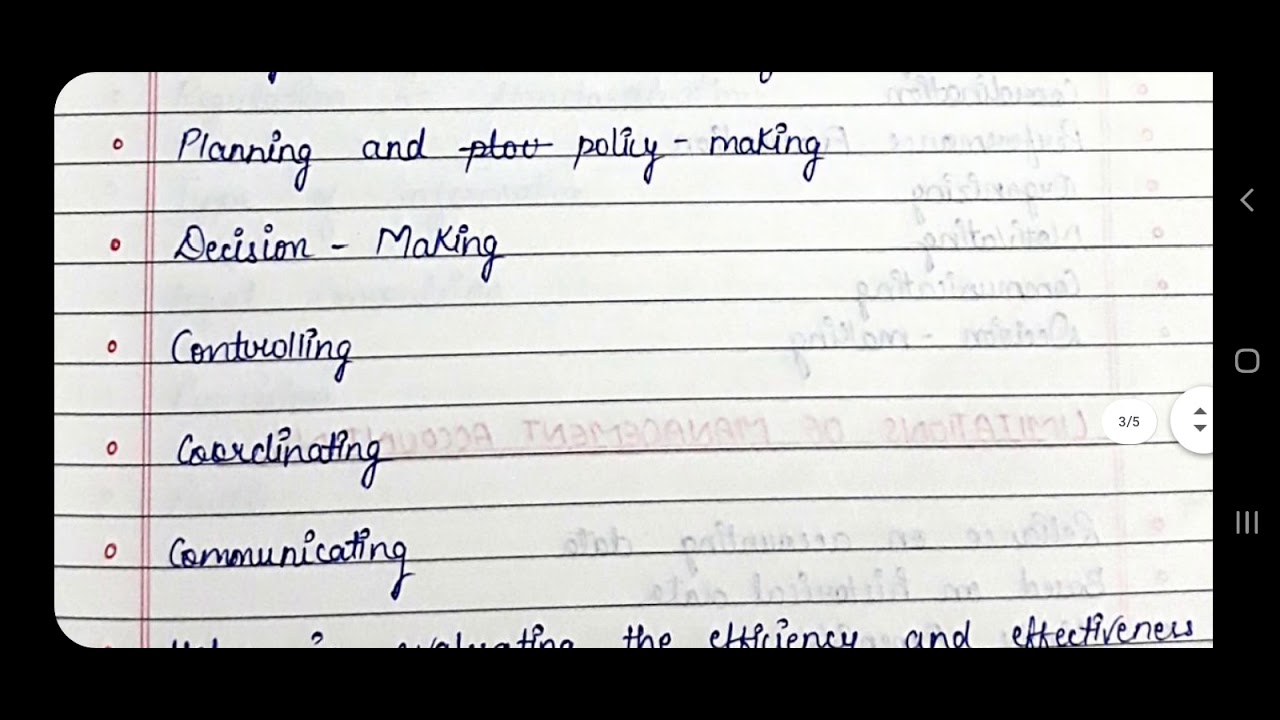 Planning and plov policy - making
Decision - Making
Controlling
Coordinating
3/5
Communicating
evaluating the efficiency and effectiveness